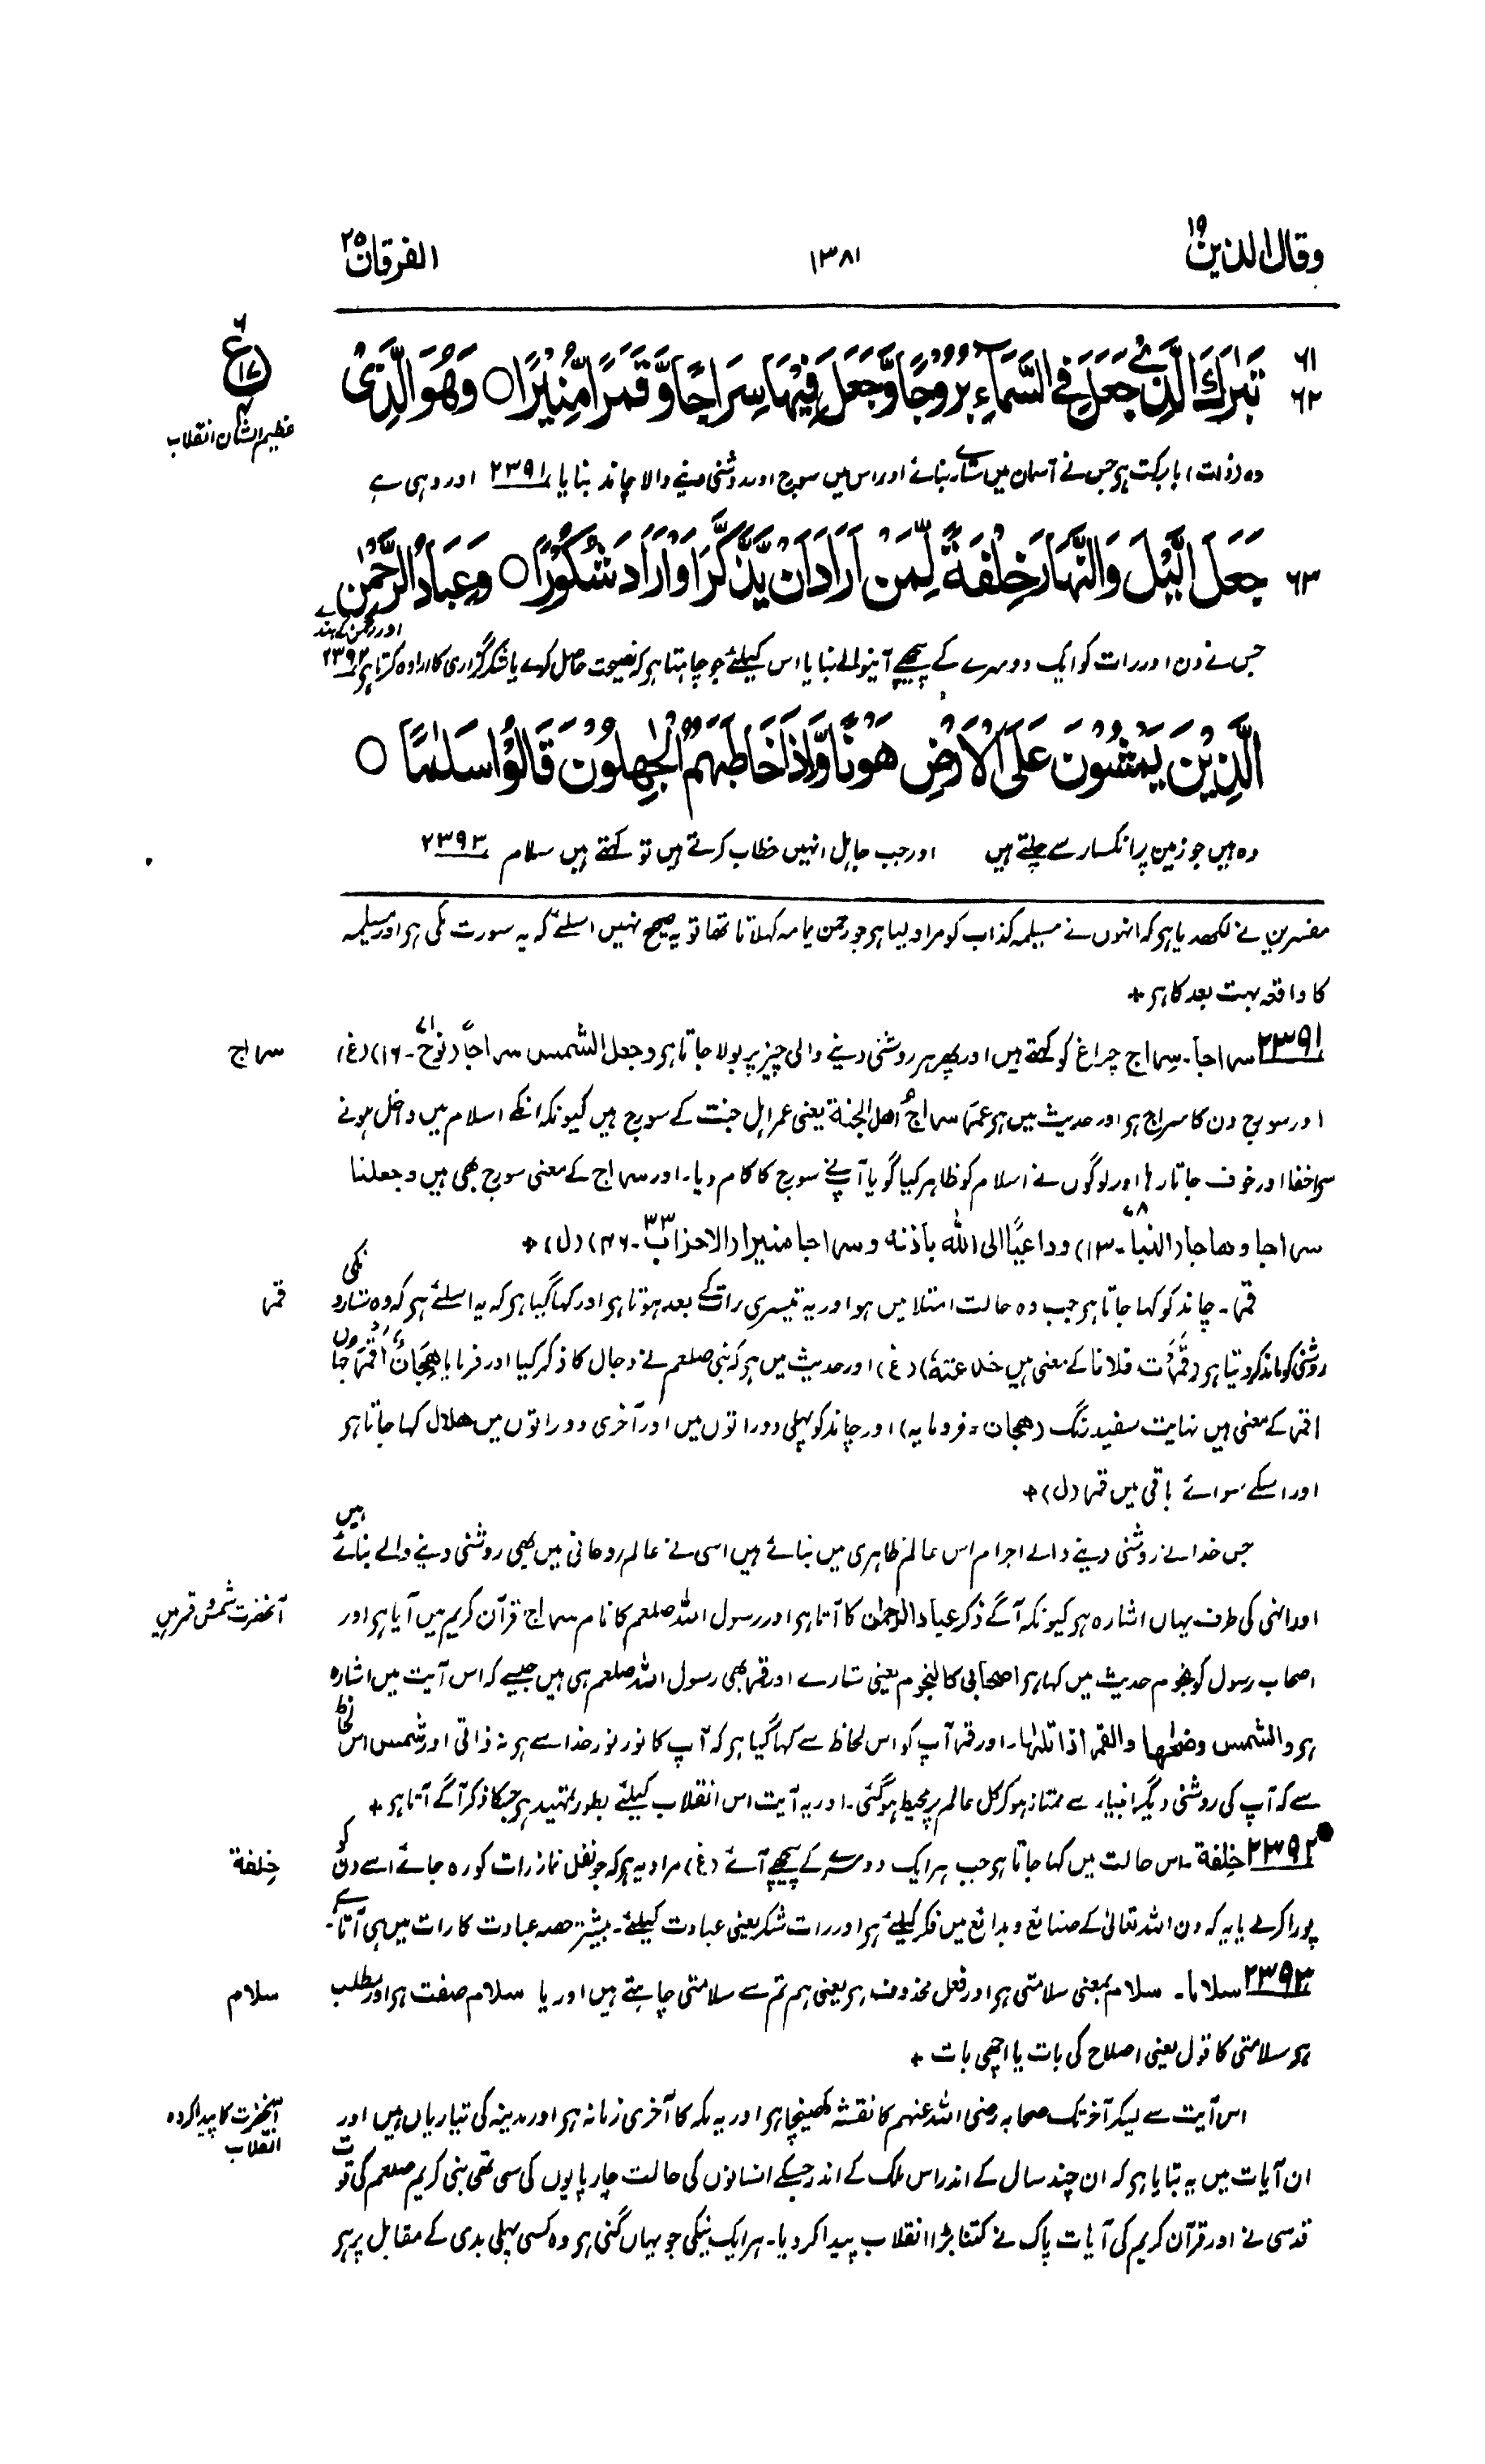 وقال الذین ۱۹
۱۳۸۱
الفرقان ۲۵
۶
ع
۱۷
عظیم الشان انقلاب
۶۱
۶۲
تَبٰرَكَ الَّذِیْ جَعَلَ فِی السَّمَآءِ بُرُوْجًا وَّجَعَلَ فِیْهَا سِرَاجًا وَّقَمَرًا مُّنِیْرًا ○ وَهُوَ الَّذِیْ
وہ (ذات) بابرکت ہو جس نے آسمان میں ستارے بنائے اور اس میں سورج اور روشنی دینے والا چاند بنایا ۲۳۹۱ اور وہی ہے
۶۳
جَعَلَ الَّیْلَ وَالنَّهَارَ خِلْفَةً لِّمَنْ اَرَادَ اَنْ یَّذَّكَّرَ اَوْ اَرَادَ شُكُوْرًا ○ وَعِبَادُ الرَّحْمٰنِ
جس نے دن اور رات کو ایک دوسرے کے پیچھے آنیوالے بنایا اس کیلئے جو چاہتا ہو کہ نصیحت حاصل کرے یا شکر گزاری کا ارادہ کرتا ہو ۲۳۹۲ اور رحمٰن کے بندے
الَّذِیْنَ یَمْشُوْنَ عَلَی الْاَرْضِ هَوْنًا وَّاِذَا خَاطَبَهُمُ الْجٰهِلُوْنَ قَالُوْا سَلٰمًا ○
وہ ہیں جو زمین پر انکسار سے چلتے ہیں اور جب جاہل انہیں خطاب کرتے ہیں تو کہتے ہیں سلام ۲۳۹۳
مفسرین نے لکھدیا ہو کہ انہوں نے مسیلمہ کذاب کو مراد لیا ہو جو رحمن یمامہ کہلاتا تھا تو یہ صحیح نہیں اسلئے کہ یہ سورت مکی ہو اور مسیلمہ
کا واقعہ بہت بعد کا ہو +
۲۳۹۱ سراجاً۔ سِراج چراغ کو کہتے ہیں اور پھر ہر روشنی دینے والی چیز پر بولا جاتا ہو وجعل الشمس سراجاً (نوح ۷۱۔۱۶) (غ)
سراج
اور سورج دن کا سراج ہو اور حدیث میں ہو عمر سراج اھل الجنة یعنی عمر اہل جنت کے سورج ہیں کیونکہ انکے اسلام میں داخل ہونے
سے اخفا اور خوف جاتا رہا اور لوگوں نے اسلام کو ظاہر کیا گویا آپ نے سورج کا کام دیا۔ اور سراج کے معنی سورج بھی ہیں وجعلنا
سراجا وھاجا (النبا ۷۸۔۱۳) وداعیًا الی اللہ باذنه وسراجا منیرا (الاحزاب ۳۳۔۴۶) (ل) +
قمر۔ چاند کو کہا جاتا ہو جب وہ حالت امتلا میں ہو اور یہ تیسری رات کے بعد ہوتا ہو اور کہا گیا ہو کہ یہ اسلئے ہو کہ وہ ستاروں کی
قمر
روشنی کو ماند کر دیتا ہو (قَمَرتُ فلانا کے معنی ہیں خدعته) (غ) اور حدیث میں ہو کہ نبی صلعم نے دجال کا ذکر کیا اور فرمایا ھِجَانٌ اَقمَر جہاں
اقمر کے معنی ہیں نہایت سفید رنگ (ھجان = فرومایہ) اور چاند کو پہلی دو راتوں میں اور آخری دو راتوں میں ھلال کہا جاتا ہو
اور اسکے سوائے باقی میں قمر (ل) +
جس خدا نے روشنی دینے والے اجرام اس عالم ظاہری میں بنائے ہیں اسی نے عالم روحانی میں بھی روشنی دینے والے بنائے ہیں
اور انہی کی طرف یہاں اشارہ ہو کیونکہ آگے ذکر عباد الرحمٰن کا آتا ہو اور رسول اللہ صلعم کا نام سراج قرآن کریم میں آیا ہو اور
آنحضرت شمس و قمر ہیں
اصحاب رسول کو نجوم حدیث میں کہا ہو اصحابی کالنجوم یعنی ستارے اور قمر بھی رسول اللہ صلعم ہی ہیں جیسے کہ اس آیت میں اشارہ
ہو والشمس وضحٰھا والقمر اذا تلٰھا۔ اور قمر آپ کو اس لحاظ سے کہا گیا ہو کہ آپ کا نور نور خدا سے ہو نہ ذاتی اور شمس اس لحاظ
سے کہ آپ کی روشنی دیگر انبیاء سے ممتاز ہو کر کل عالم پر محیط ہو گئی۔ اور یہ آیت اس انقلاب کیلئے بطور تمہید ہو جسکا ذکر آگے آتا ہو +
۲۳۹۲ خِلفة۔ اس حالت میں کہا جاتا ہو جب ہر ایک دوسرے کے پیچھے آئے (غ) مراد یہ ہو کہ جو نفل نماز رات کو رہ جائے اسے دن کو
خِلفة
پورا کرلے یا یہ کہ دن اللہ تعالیٰ کے صنائع و بدائع میں فکر کیلئے ہو اور رات شکر یعنی عبادت کیلئے۔ بیشتر حصہ عبادت کا رات میں ہی آتا ہے۔
۲۳۹۳ سلاما۔ سلام بمعنی سلامتی ہو اور فعل محذوف ہو یعنی ہم تم سے سلامتی چاہتے ہیں اور یا سلام صفت ہو اور مطلب
سلام
ہو سلامتی کا قول یعنی اصلاح کی بات یا اچھی بات +
اس آیت سے لیکر آخر تک صحابہ رضی اللہ عنہم کا نقشہ کھینچا ہو اور یہ مکہ کا آخری زمانہ ہو اور مدینہ کی تیاریاں ہیں اور
آنحضرت کا پیدا کردہ انقلاب
ان آیات میں یہ بتایا ہو کہ ان چند سال کے اندر اس ملک کے اندر جسکے انسانوں کی حالت چارپایوں کی سی تھی نبی کریم صلعم کی قوت
قدسی نے اور قرآن کریم کی آیات پاک نے کتنا بڑا انقلاب پیدا کر دیا۔ ہر ایک نیکی جو یہاں گنی ہو وہ کسی پہلی بدی کے مقابل پر ہو